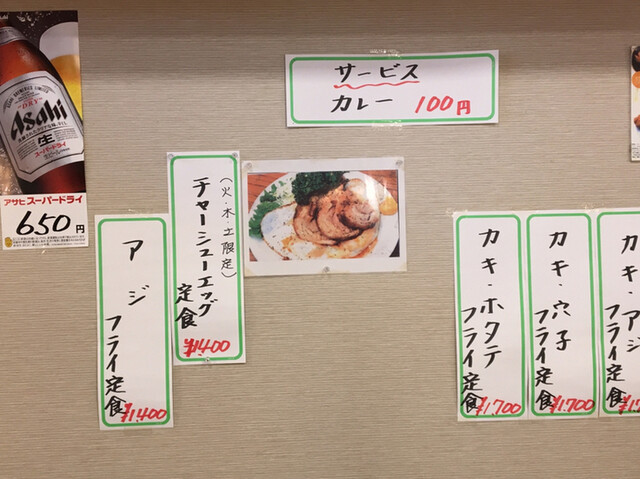 Asahi
DRY
生
スーパードライ
アサヒ スーパードライ
650円
サービス
カレー 100円
(火・木・土限定)
チャーシューエッグ
定食
¥1400
アジ
フライ定食
¥1,400
カキ・ホタテ
フライ定食
¥1,700
カキ・穴子
フライ定食
¥1,700
カキ・アジ
フライ定食